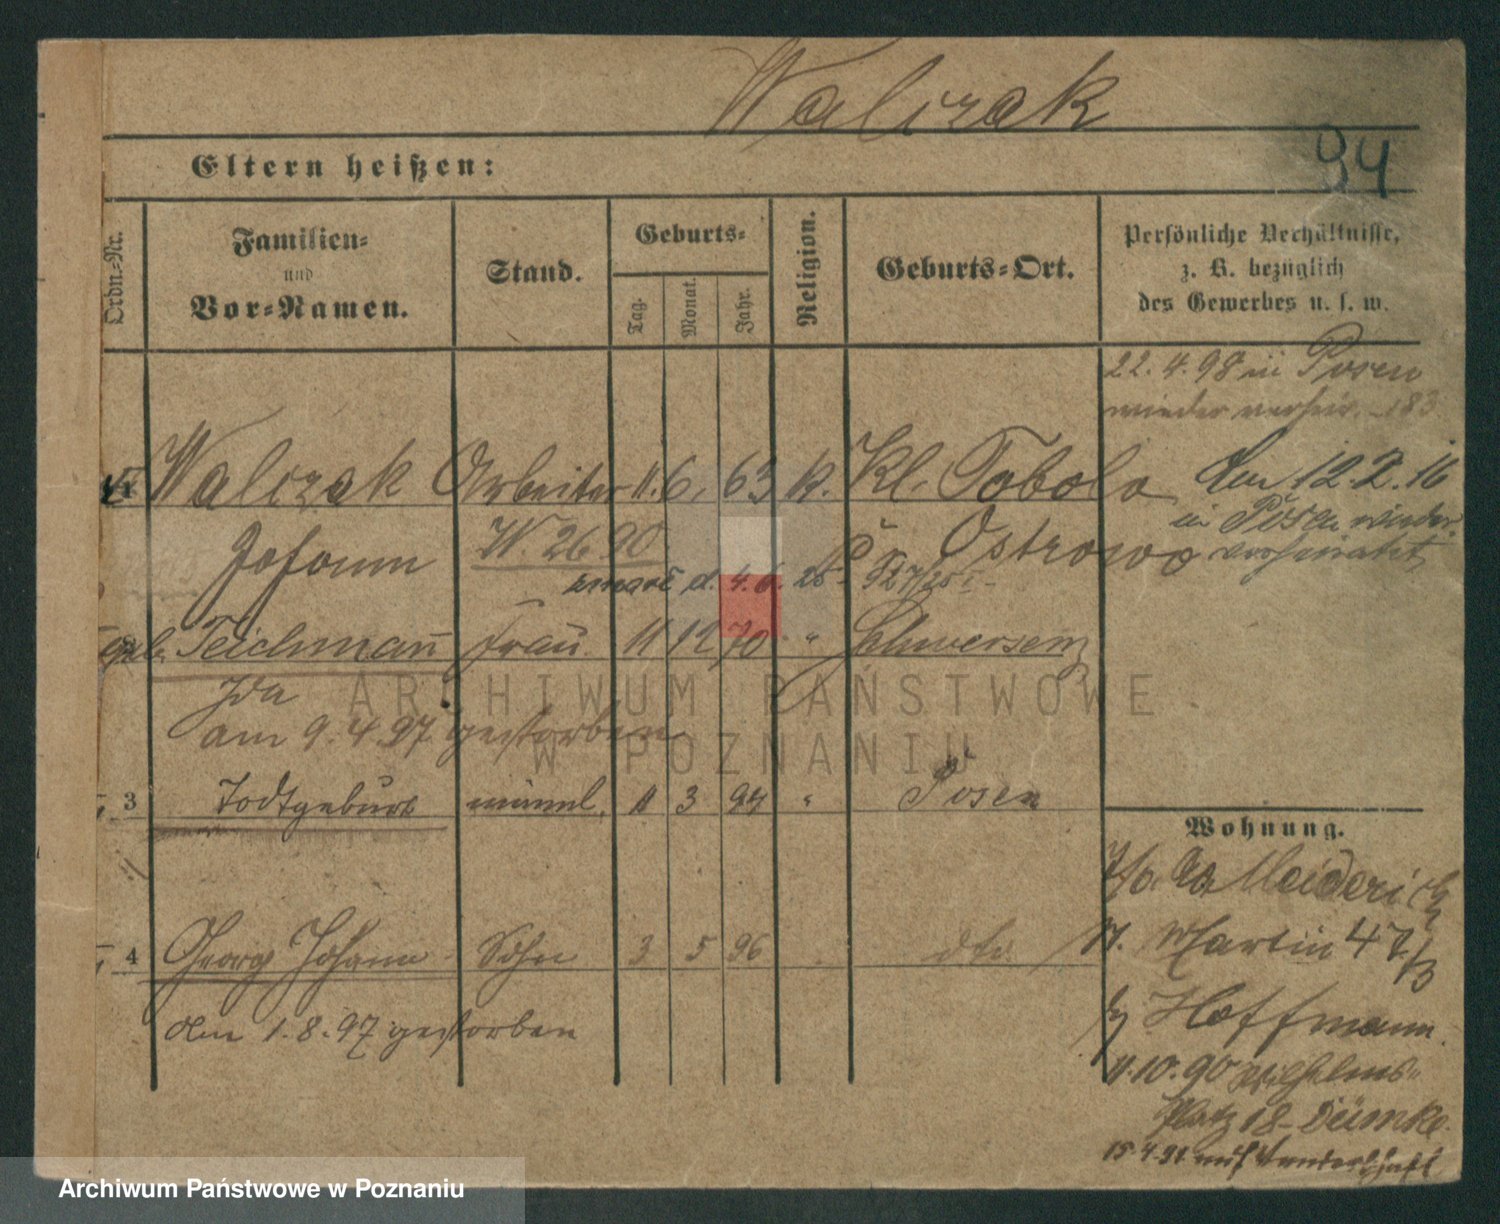 Walczak
94
Eltern heißen:
Ordn.-Nr.
Familien-
und
Vor-Namen.
Stand.
Geburts-
Tag.
Monat.
Jahr.
Religion.
Geburts-Ort.
Persönliche Verhältnisse,
z. B. bezüglich
des Gewerbes u. s. w.
22. 4. 98 in Posen
wieder verheir. 183
1 Walczak Arbeiter 11. 6. 63 K. Kl. Tobola
Den 12.2.16
Johann W. 26 90 Kr Ostrowo
in Posen wieder
verheiratet
zmarł d. 4. 6. 25
2 geb. Teichmann Frau 11 12 70 " Schwersenz
Ida
am 9. 4. 97 gestorben
3 Todtgeburt männl. 11 3 94 " Posen
Wohnung.
Meiderich
4 Georg Johann Sohn 3 5 96 dto.
St. Martin 47/3
den 1. 8. 97 gestorben
Hoffmann
11.10.90 Wilhelms-
platz 18 Dümke
15.4.91 auf Wanderschaft
ARCHIWUM PAŃSTWOWE
W POZNANIU
Archiwum Państwowe w Poznaniu